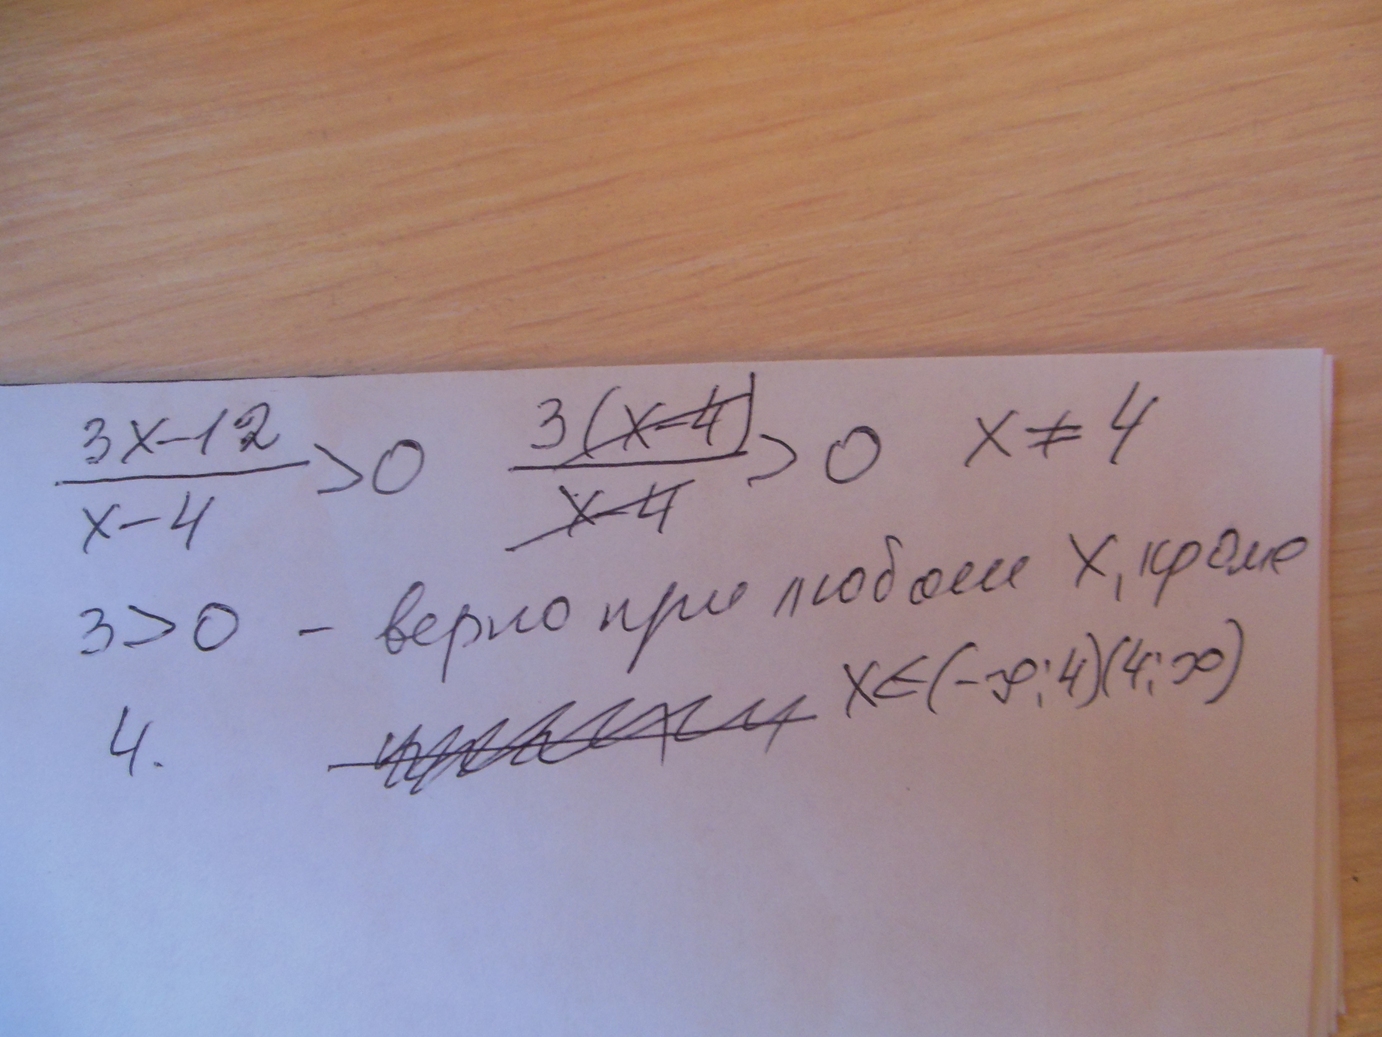 (3x-12)/(x-4) > 0   3(x-4)/(x-4) > 0   x ≠ 4
3>0 - верно при любом x, кроме
4.   x∈(-∞;4)(4;∞)